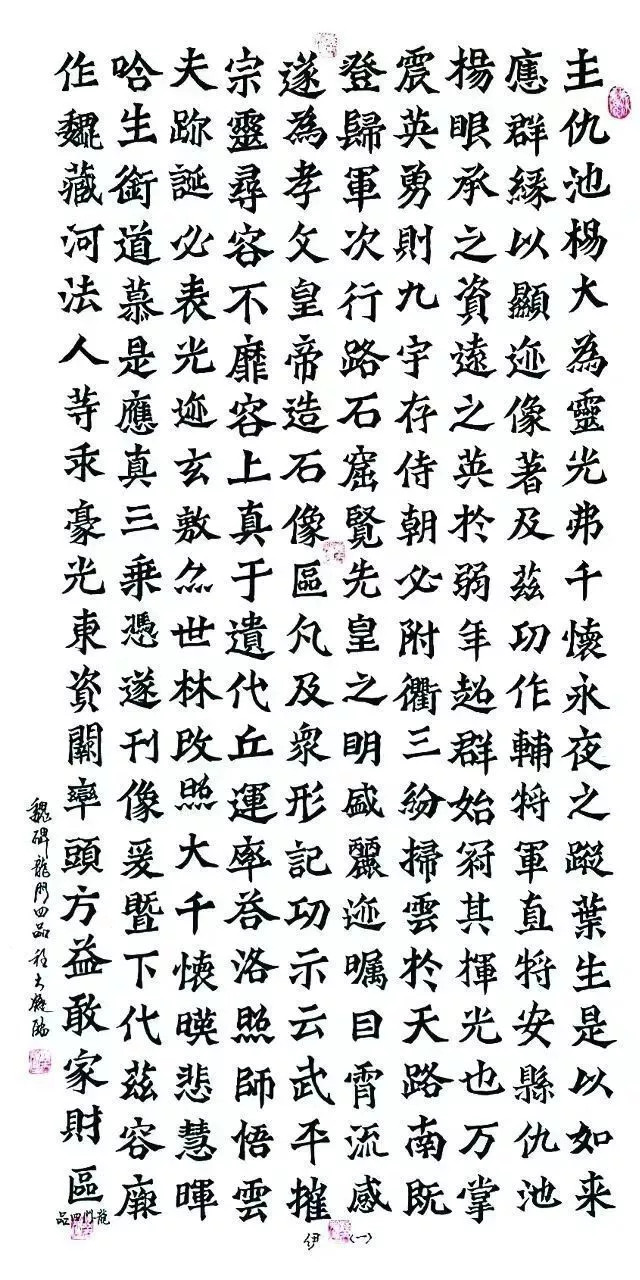 主仇池楊大為靈光弗千懷永夜之蹤葉生是以如来
應群緣以顯迹像著及茲㓛作輔將軍直將安縣仇池
揚眼承之資遠之英於弱年超群始冠其揮光也万掌
震英勇則九宇存侍朝必附衢三紛掃雲於天路南既
登歸軍次行路石窟覽先皇之明盛麗迹矚目霄流感
遂為孝文皇帝造石像區凡及眾形記㓛示云武平摧
宗靈尋容不靡容上真于遺代丘運率荅洛照師悟雲
夫跡誕必表光迹玄敷尒世林改照大千懷暎悲慧暉
哈生銜道慕是應真三乘憑遂刊像爰暨下代茲容廡
作魏藏河法人等乖豪光東資闡率頭方益敢家財區
魏碑龍門四品程大癡臨
龍門四品
伊(一)